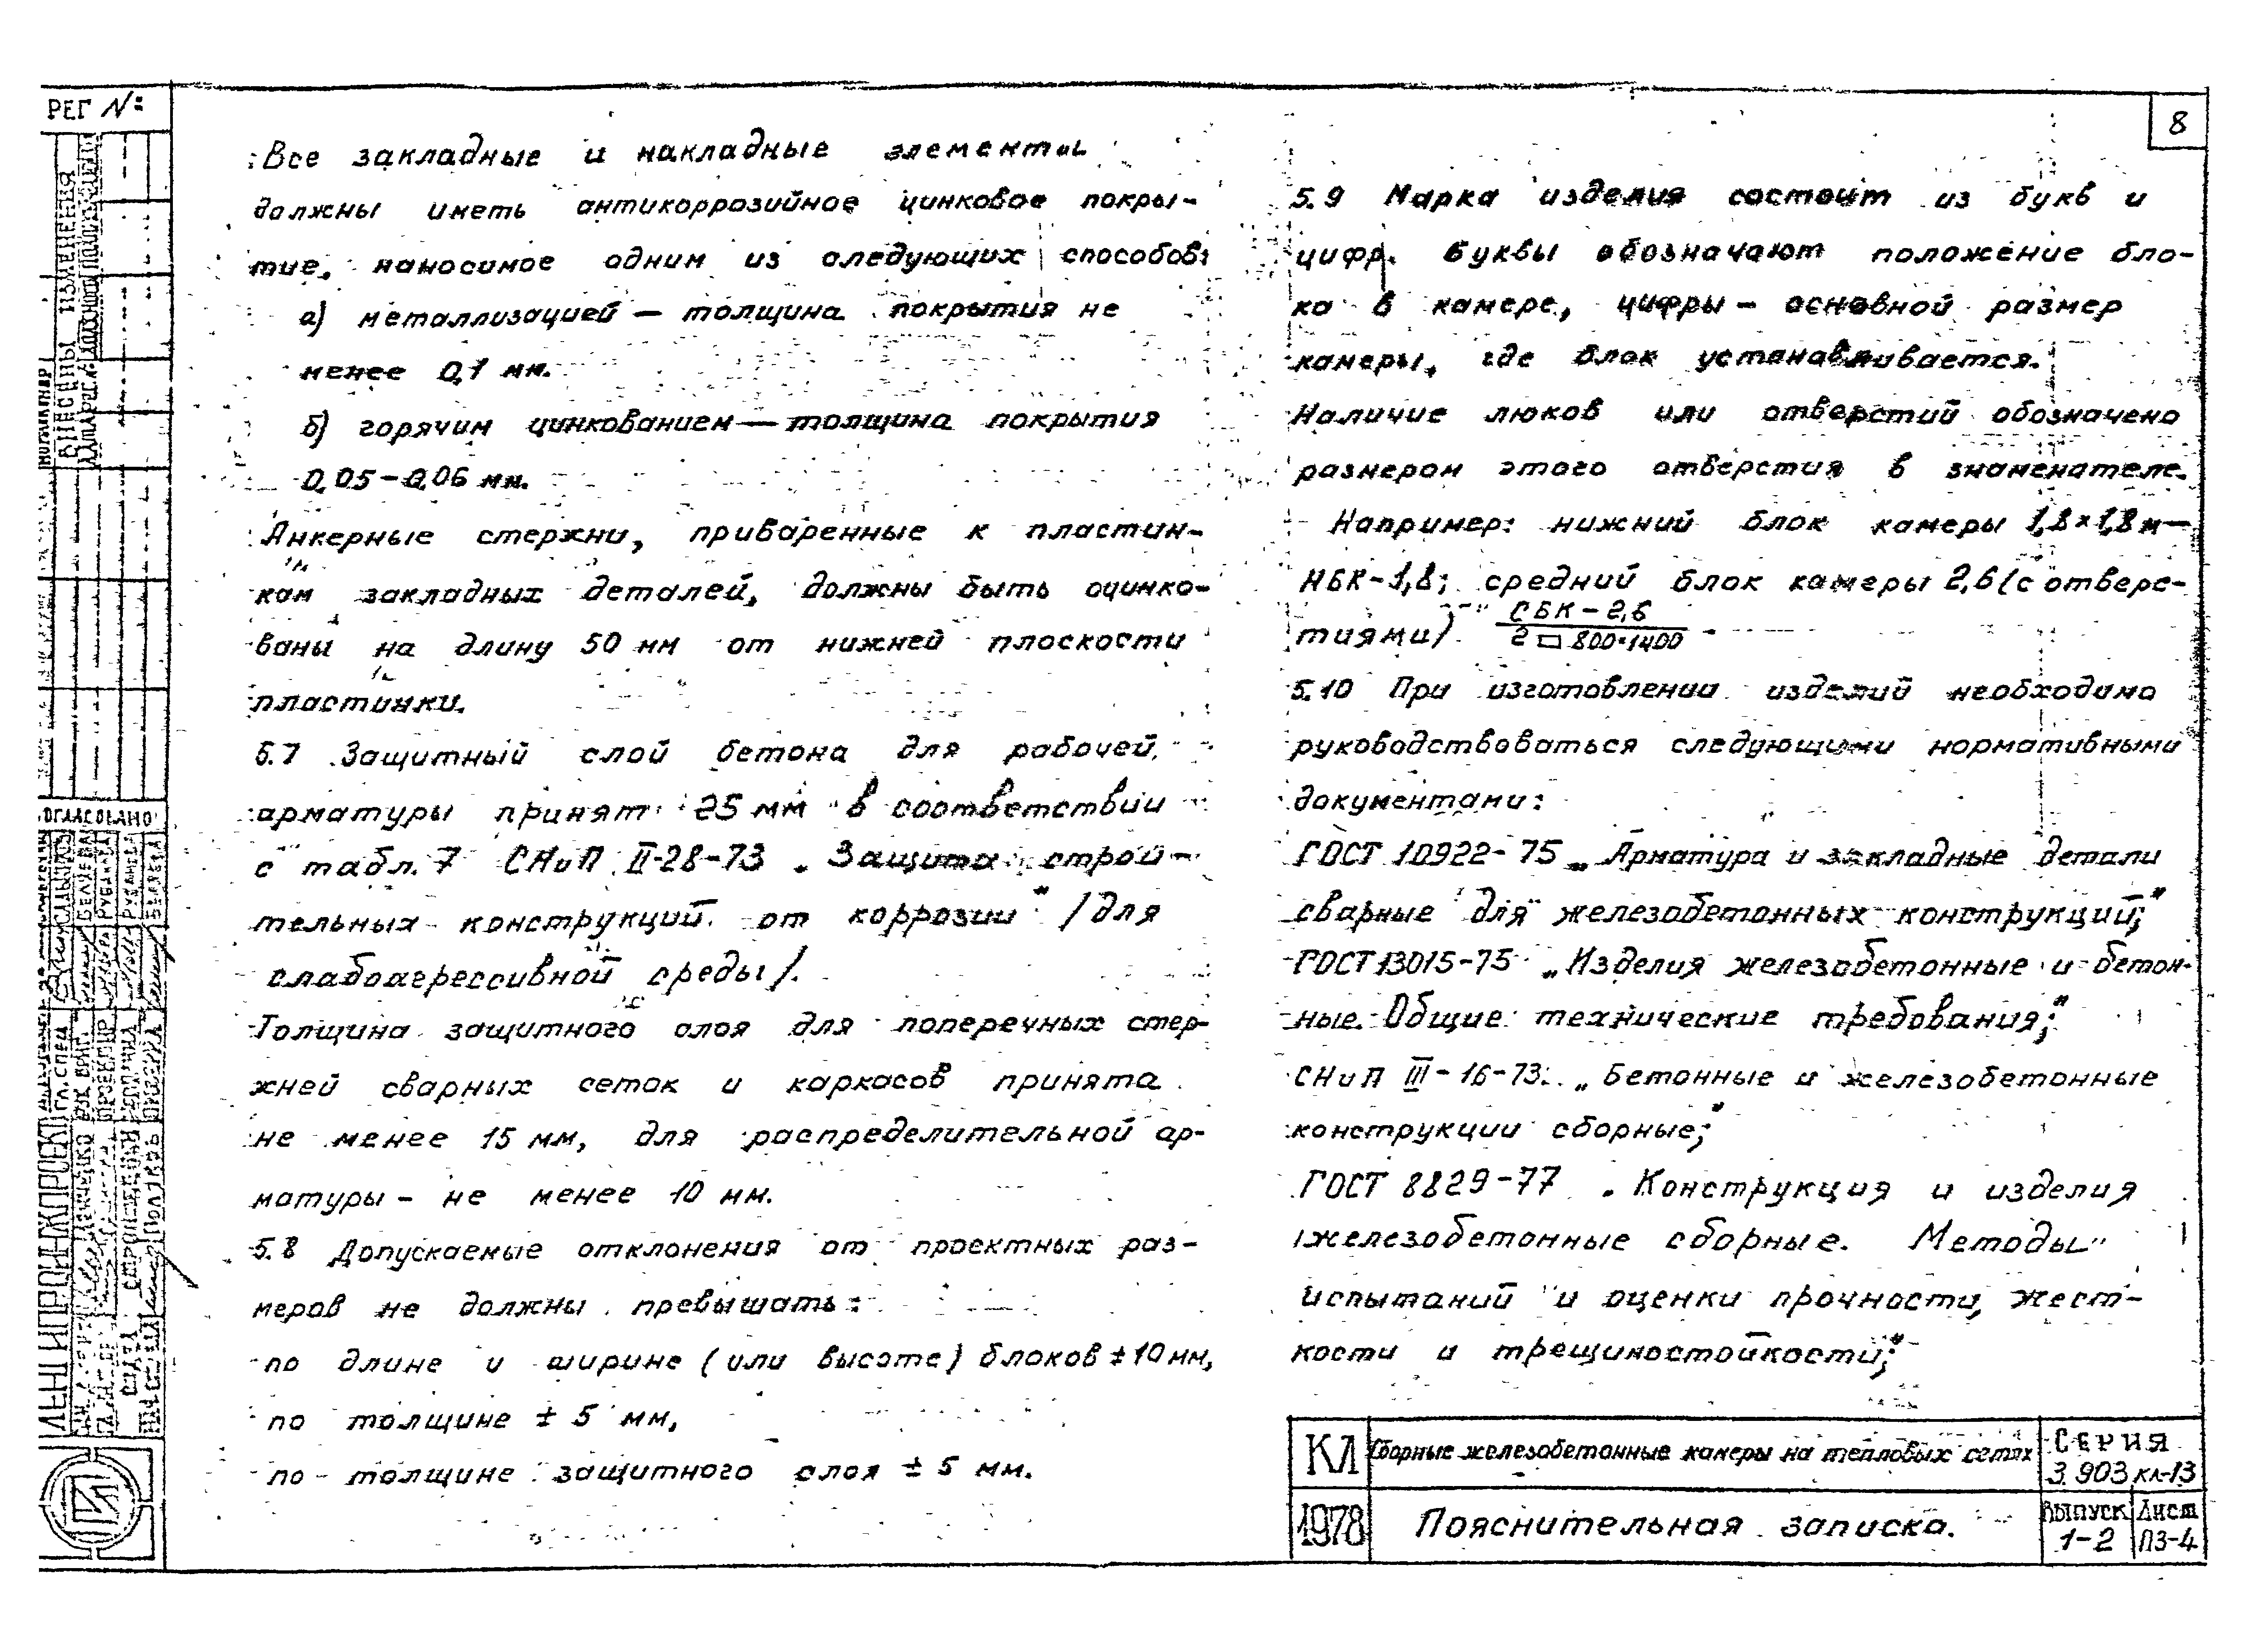 РЕГ №:
8
Все закладные и накладные элементы
должны иметь антикоррозийное цинковое покры-
тие, наносимое одним из следующих способов:
а) металлизацией — толщина покрытия не
менее 0,1 мм.
б) горячим цинкованием — толщина покрытия
0,05-0,06 мм.
Анкерные стержни, приваренные к пластин-
кам закладных деталей, должны быть оцинко-
ваны на длину 50 мм от нижней плоскости
пластинки.
5.7 Защитный слой бетона для рабочей
арматуры принят 25 мм в соответствии
с табл. 7 СНиП II-28-73 „Защита строи-
тельных конструкций от коррозии" /для
слабоагрессивной среды/.
Толщина защитного слоя для поперечных стер-
жней сварных сеток и каркасов принята
не менее 15 мм, для распределительной ар-
матуры - не менее 10 мм.
5.8 Допускаемые отклонения от проектных раз-
меров не должны превышать:
по длине и ширине (или высоте) блоков ± 10 мм,
по толщине ± 5 мм,
по толщине защитного слоя ± 5 мм.
5.9 Марка изделия состоит из букв и
цифр. Буквы обозначают положение бло-
ка в камере, цифры - основной размер
камеры, где блок устанавливается.
Наличие люков или отверстий обозначено
размером этого отверстия в знаменателе.
Например: нижний блок камеры 1,8×1,8 м —
НБК-1,8; средний блок камеры 2,6 (с отверс-
тиями) СБК-2,6
2 □ 800×1400
5.10 При изготовлении изделий необходимо
руководствоваться следующими нормативными
документами:
ГОСТ 10922-75 „Арматура и закладные детали
сварные для железобетонных конструкций";
ГОСТ 13015-75 „Изделия железобетонные и бетон-
ные. Общие технические требования";
СНиП III-16-73. „Бетонные и железобетонные
конструкции сборные";
ГОСТ 8829-77 „Конструкция и изделия
железобетонные сборные. Методы
испытаний и оценки прочности, жест-
кости и трещиностойкости";
ВНЕСЕНЫ ИЗМЕНЕНИЯ
СОГЛАСОВАНО
ЛЕНГИПРОИНЖПРОЕКТ
КЛ
Сборные железобетонные камеры на тепловых сетях
Серия
3.903 кл-13
1978
Пояснительная записка.
Выпуск
1-2
Лист
ПЗ-4